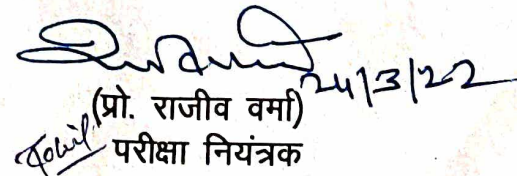 24/3/22
(प्रो. राजीव वर्मा)
परीक्षा नियंत्रक